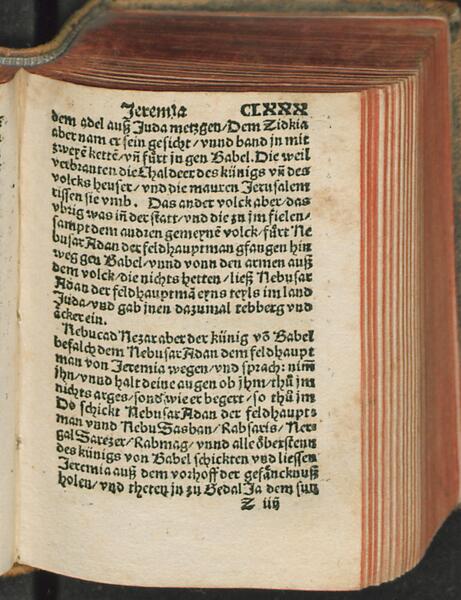 Jeremia CLXXX
dem adel auß Juda metzgen/Dem Zidkia
aber nam er sein gesicht/vnnd band jn mit
zweyē kettē/vñ fůrt jn gen Babel. Die weil
verbranten die Chaldeer des künigs vñ des
volcks heuser/vnd die mauren Jerusalem
rissen sie vmb. Das ander volck aber/das
vbrig was iñ der statt/vnd die zu jm fielen/
sampt dem andren gemeynē volck/fůrt Ne
busar Adan der feldhauptman gfangen hin
weg gen Babel/vnnd vonn den armen auß
dem volck/die nichts hetten/ließ Nebusar
Adan der feldhauptmā eyns teyls im land
Juda/vnd gab jnen dazumal rebberg vnd
äcker ein.
Nebucad Nezar aber der künig vō Babel
befalch dem Nebusar Adan dem feldhaupt
man von Jeremia wegen/vnd sprach: nim̃
jhn/vnnd halt deine augen ob jhm/thů jm
nichts arges/sond̕ wie er begert/so thů jm
Do schickt Nebusar Adan der feldhaupt=
man vnnd Nebu Sasban/Rabsaris/Ner=
gal Sarezer/Rabmag/vnnd alle öbersten
des künigs von Babel schickten vnd liessen
Jeremia auß dem vorhoff der gefäncknuß
holen/vnd theten jn zu Gedal Ja dem sun
Z iiij